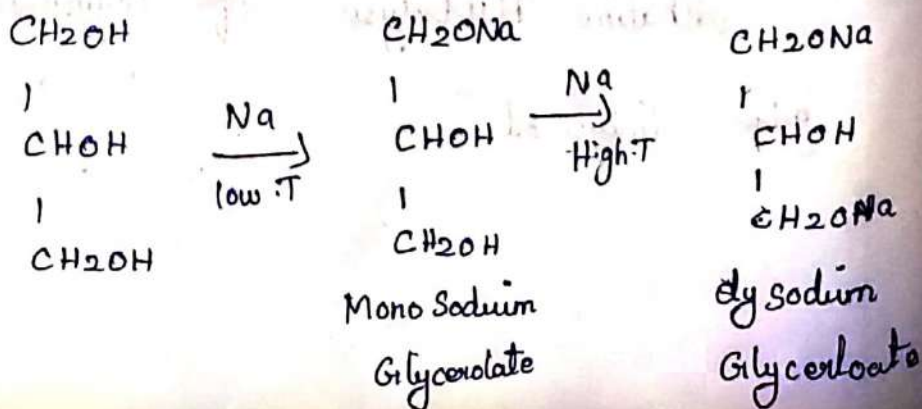 CH2OH
|
CHOH
|
CH2OH
Na
low :T
CH2ONa
|
CHOH
|
CH2OH
Mono Soduim
Glycerolate
Na
High:T
CH2ONa
|
CHOH
|
CH2ONa
dy sodium
Glycerloate